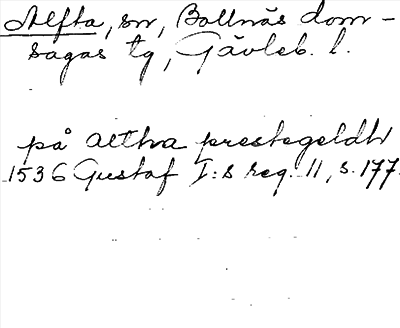 Alfta, sn, Bollnäs dom-
sagas tg, Gävleb. l.
på altha prestegeldh
1536 Gustaf I:s reg. 11, s. 177.